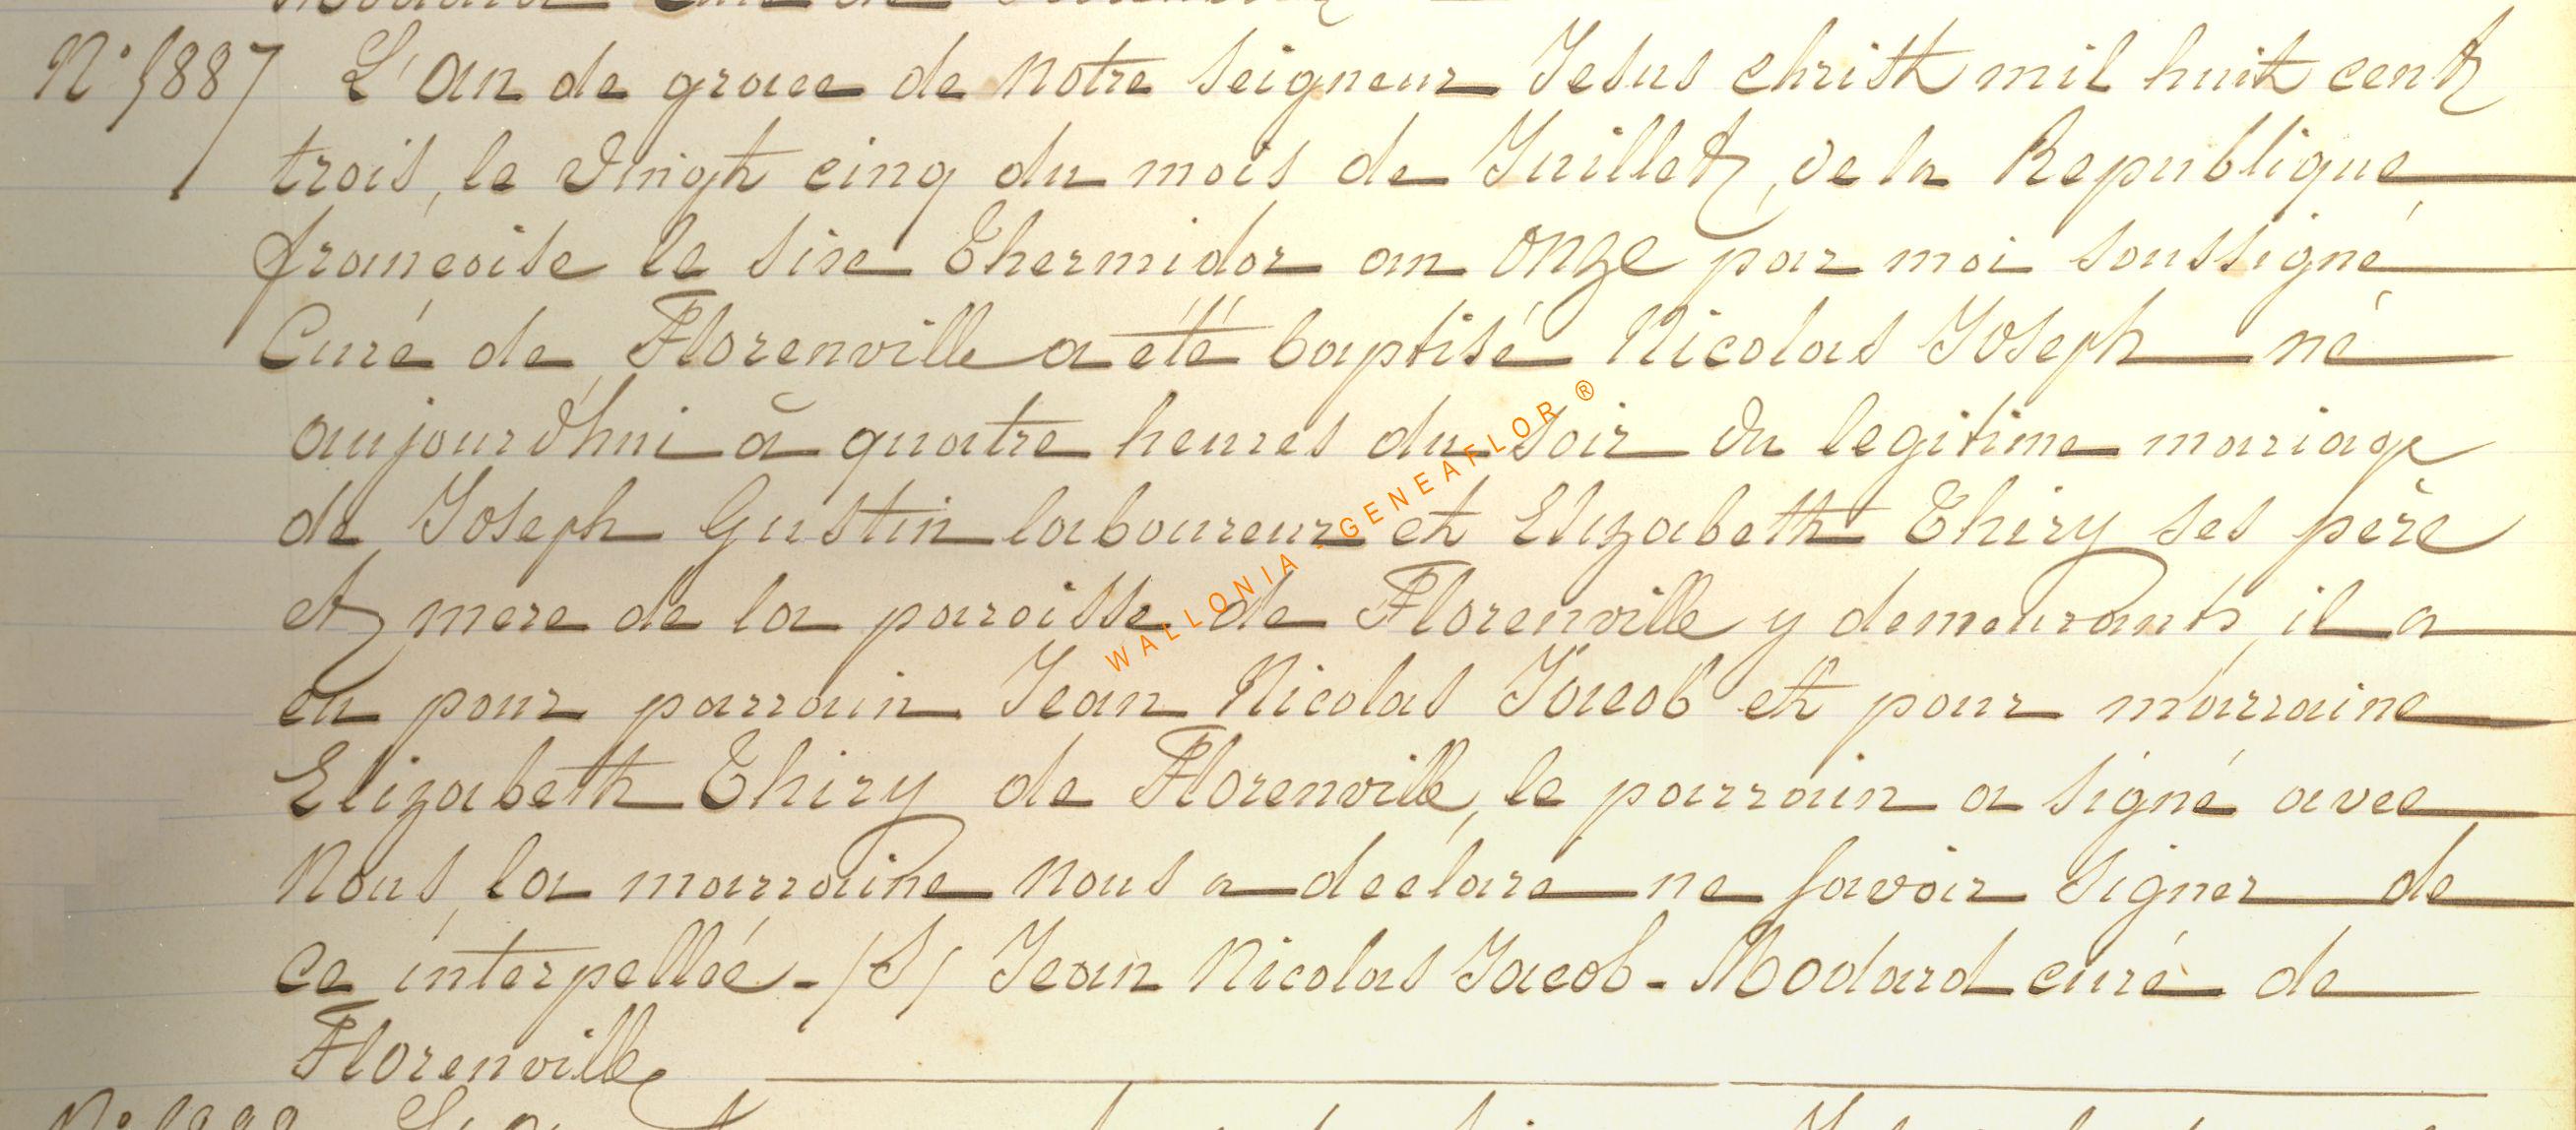 N° 1887 L'An de grace de Notre Seigneur Jesus christ mil huit cent
trois, le Vingt cinq du mois de Juillet, de la Republique
francoise le sixe Thermidor an onze par moi soussigné
Curé de Florenville a été baptisé Nicolas Joseph né
aujourd'hui à quatre heures du soir du legitime mariage
de Joseph Gustin laboureur et Elizabeth Thiry ses père
et mere de la paroisse de Florenville y demeurants, il a
eu pour parrain Jean Nicolas Jacob et pour marraine
Elizabeth Thiry de Florenville, le parrain a signé avec
Nous, la marraine Nous a declaré ne savoir Signer de
ce interpellée - /S/ Jean Nicolas Jacob - Modard curé de
Florenville
WALLONIA - GENEAFLOR ®